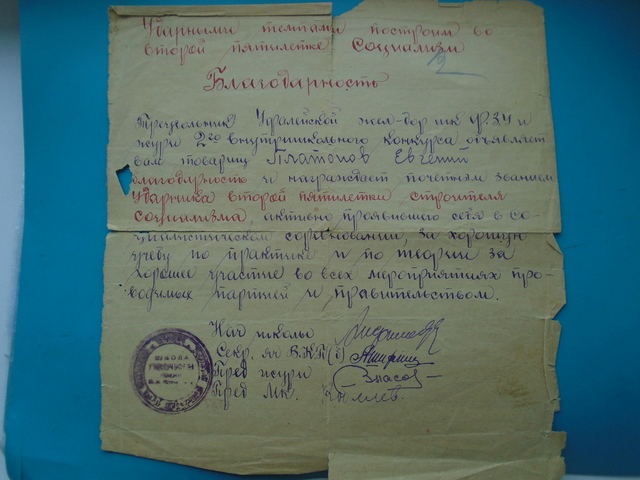 Ударными темпами построим во
второй пятилетке социализм
2
Благодарность
Треугольник Уфалейской жел-дор шк ФЗУ и
жури 2го внутришкольного конкурса объявляет
вам товарищ Платонов Евгений
благодарность и награждает почетным званием
Ударника второй пятилетки строителя
социализма, активно проявившего себя в со-
циалистическом соревновании, за хорошую
учебу по практике и по теории за
хорошее участие во всех мероприятиях про-
водимых партией и правительством.
Нач школы
Секр. яч В.К.П(б)
Пред жури Власов
Пред МК.